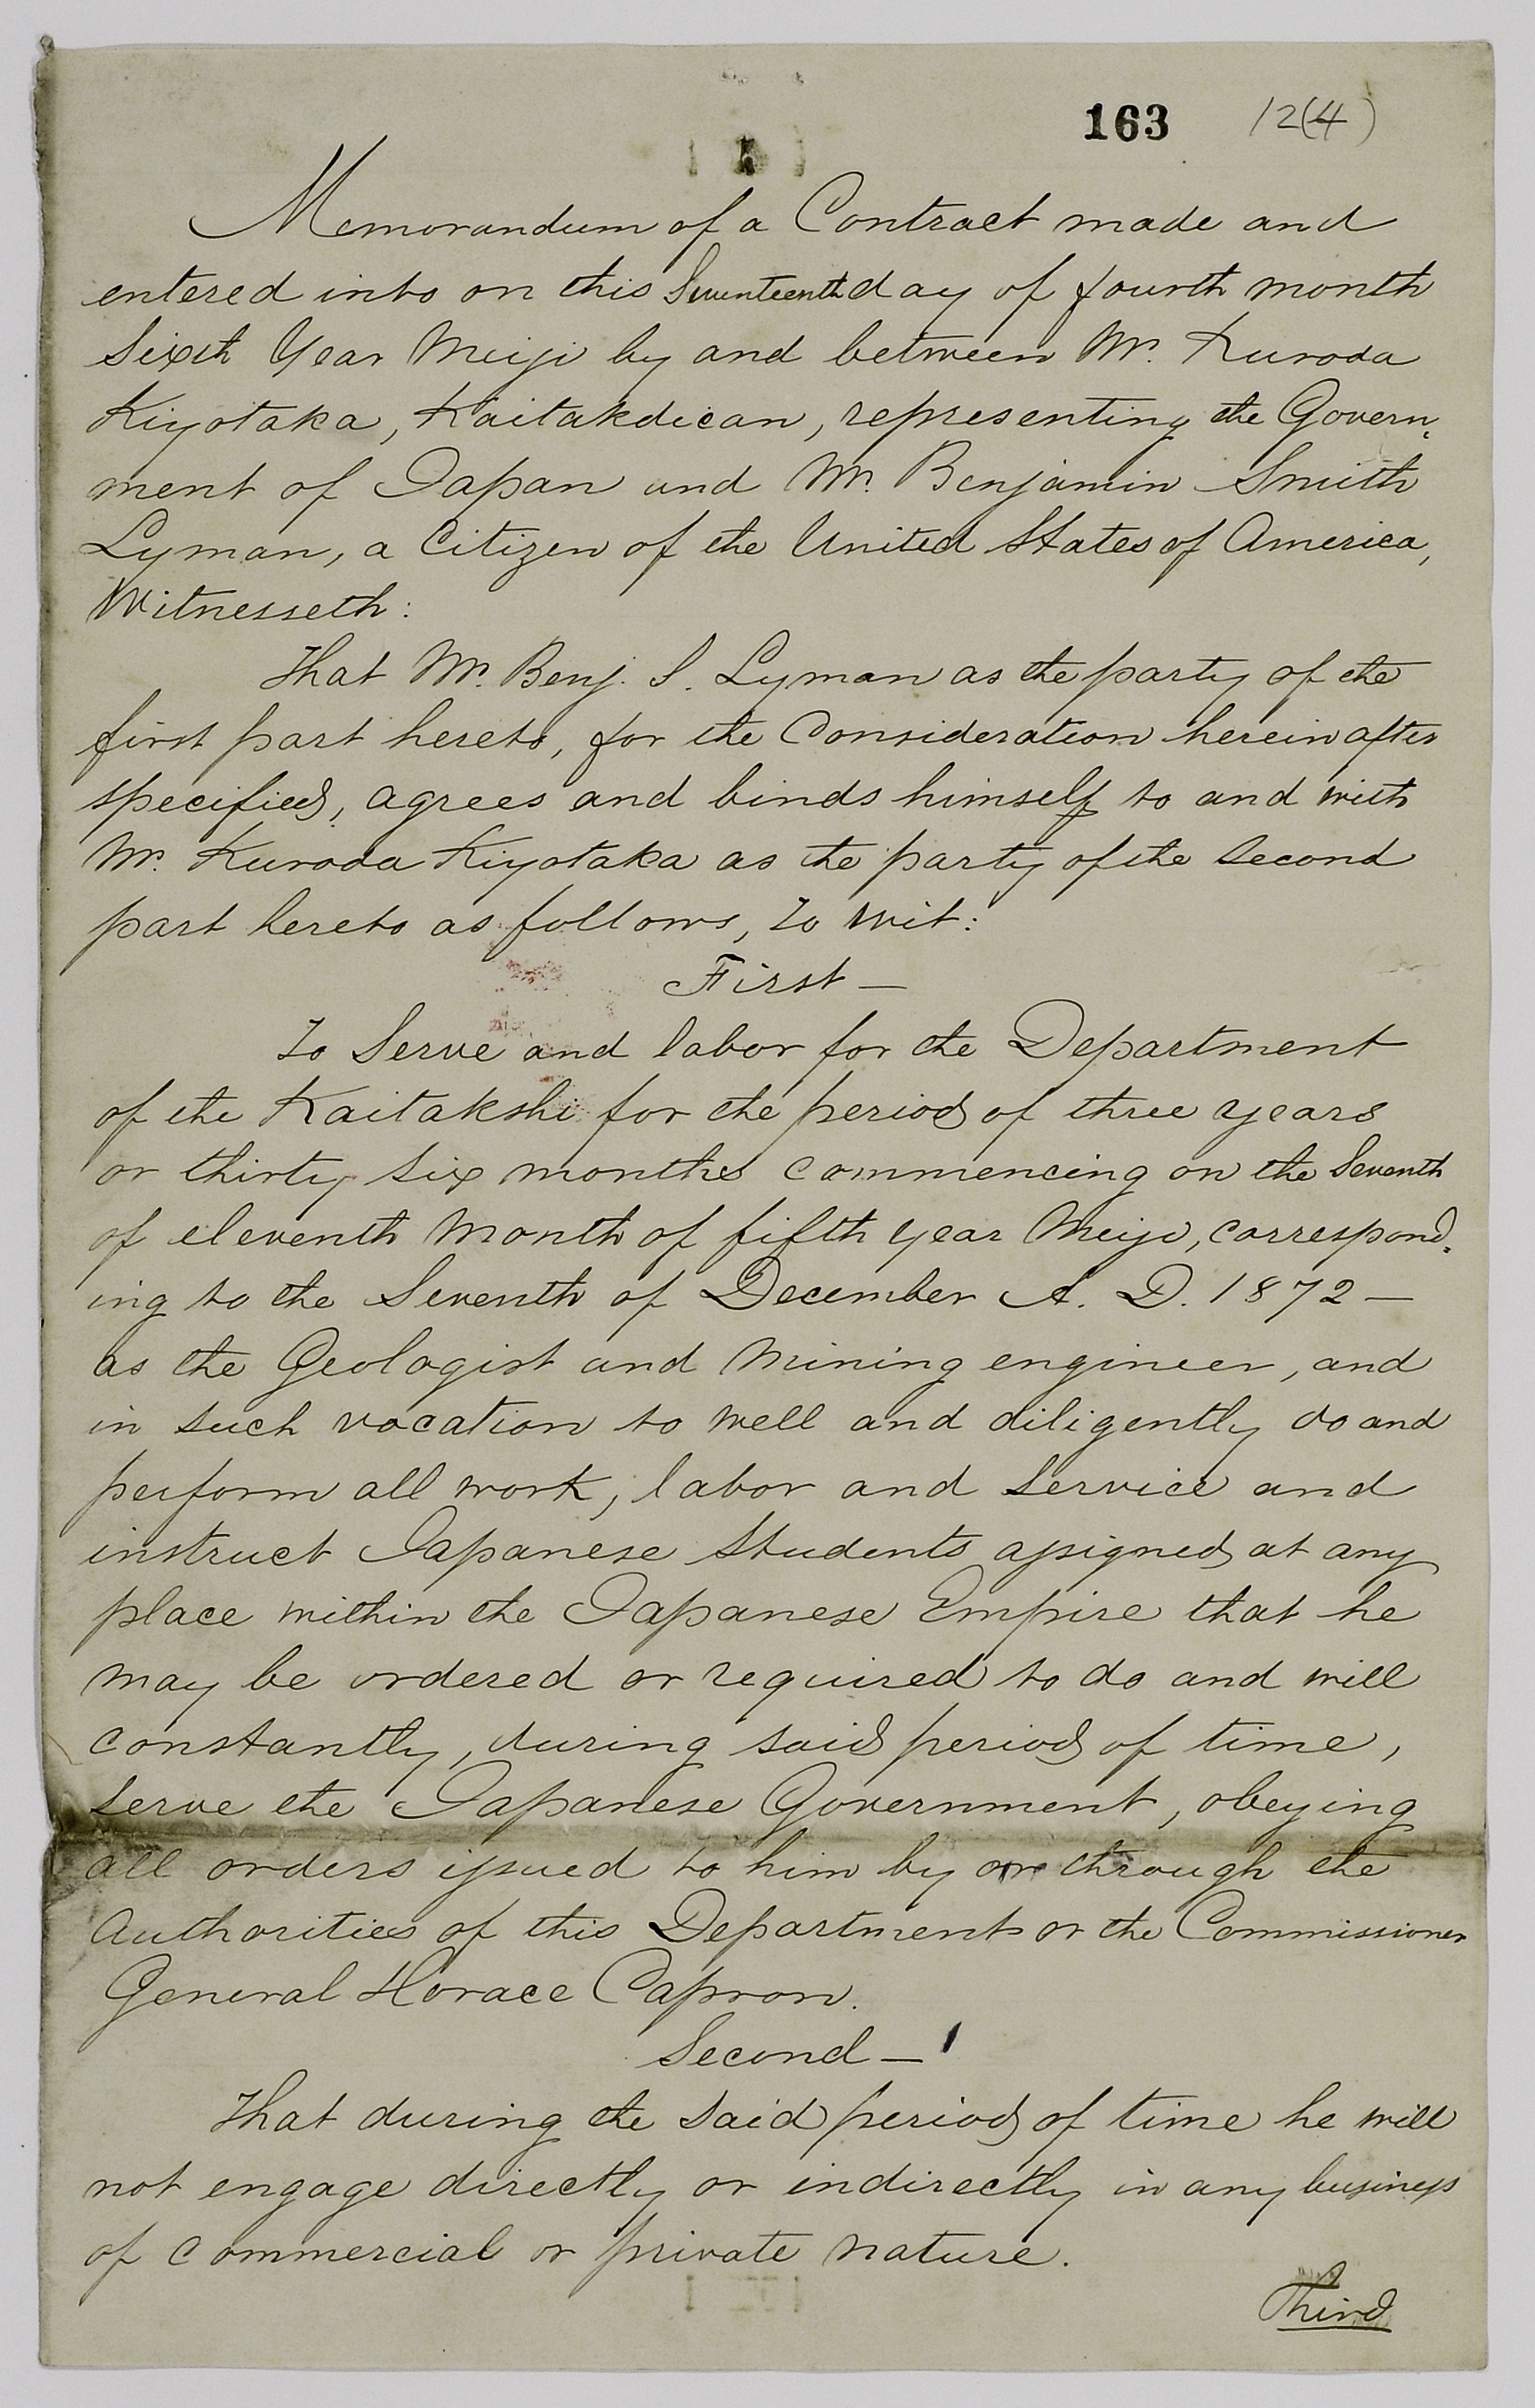 163 12(4)
Memorandum of a Contract made and
entered into on this Seventeenth day of fourth month
Sixth Year Meiji by and between Mr. Kuroda
Kiyotaka, Kaitakdican, representing the Govern-
ment of Japan and Mr. Benjamin Smith
Lyman, a Citizen of the United States of America,
Witnesseth:
That Mr. Benj. S. Lyman as the party of the
first part hereto, for the Consideration herein after
specified, agrees and binds himself to and with
Mr. Kuroda Kiyotaka as the party of the Second
part hereto as follows, to wit:
First —
To Serve and labor for the Department
of the Kaitakshi for the period of three years
or thirty six months commencing on the Seventh
of eleventh month of fifth year Meiji, correspond-
ing to the Seventh of December A. D. 1872 —
as the Geologist and Mining engineer, and
in such vocation to well and diligently do and
perform all work, labor and service and
instruct Japanese Students assigned at any
place within the Japanese Empire that he
may be ordered or required to do and will
constantly, during said period of time,
serve the Japanese Government, obeying
all orders issued to him by or through the
Authorities of this Department or the Commissioner
General Horace Capron.
Second —
That during the said period of time he will
not engage directly or indirectly in any business
of commercial or private nature.
Third